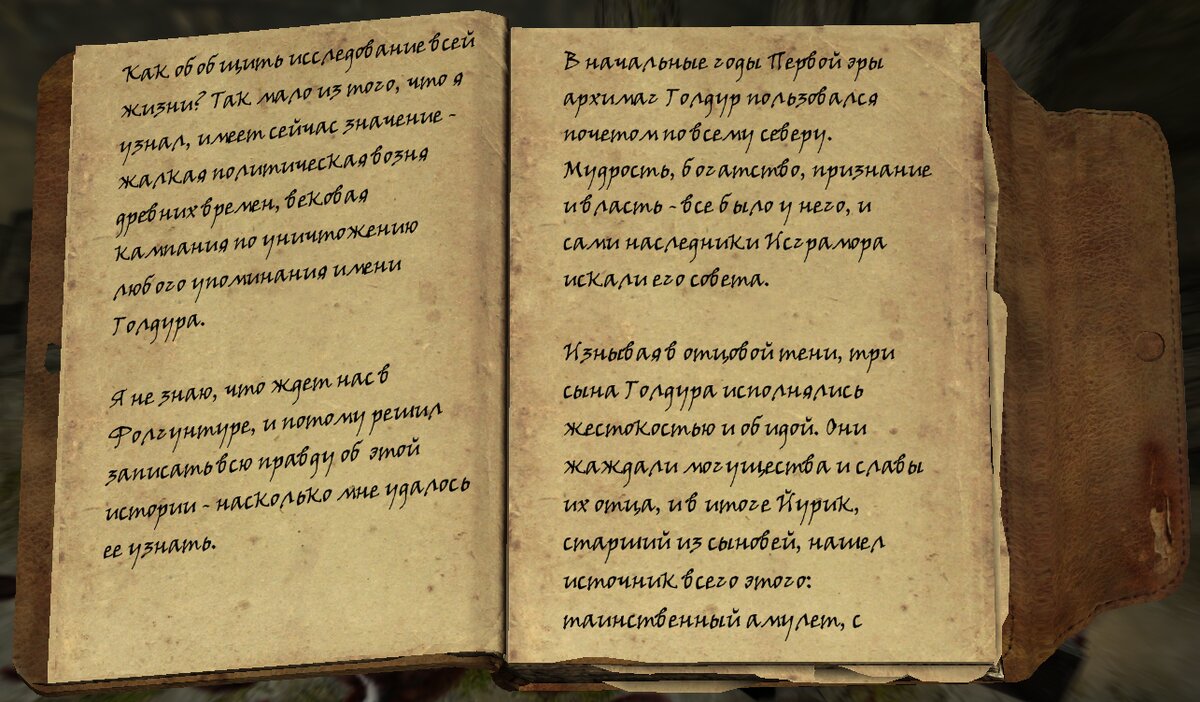 Как обобщить исследование всей
жизни? Так мало из того, что я
узнал, имеет сейчас значение -
жалкая политическая возня
древних времен, вековая
кампания по уничтожению
любого упоминания имени
Голдура.
Я не знаю, что ждет нас в
Фолгунтуре, и потому решил
записать всю правду об этой
истории - насколько мне удалось
ее узнать.
В начальные годы Первой эры
архимаг Голдур пользовался
почетом по всему северу.
Мудрость, богатство, признание
и власть - все было у него, и
сами наследники Исграмора
искали его совета.
Изнывая в отцовой тени, три
сына Голдура исполнялись
жестокостью и обидой. Они
жаждали могущества и славы
их отца, и в итоге Йурик,
старший из сыновей, нашел
источник всего этого:
таинственный амулет, с